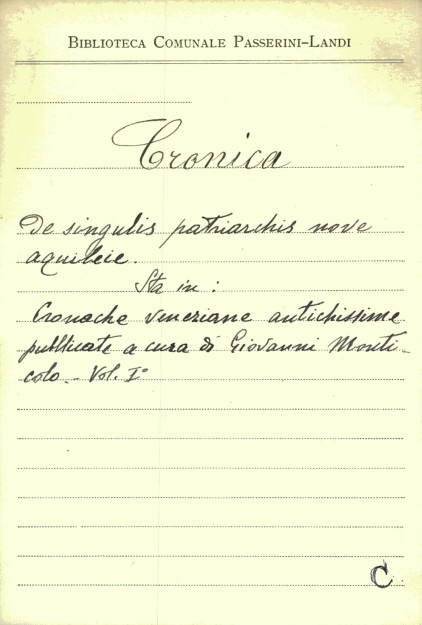 BIBLIOTECA COMUNALE PASSERINI-LANDI
Cronica
De singulis patriarchis nove
aquileie.
Sta in :
Cronache veneziane antichissime
pubblicate a cura di Giovanni Monti-
colo. - Vol. I°
C.